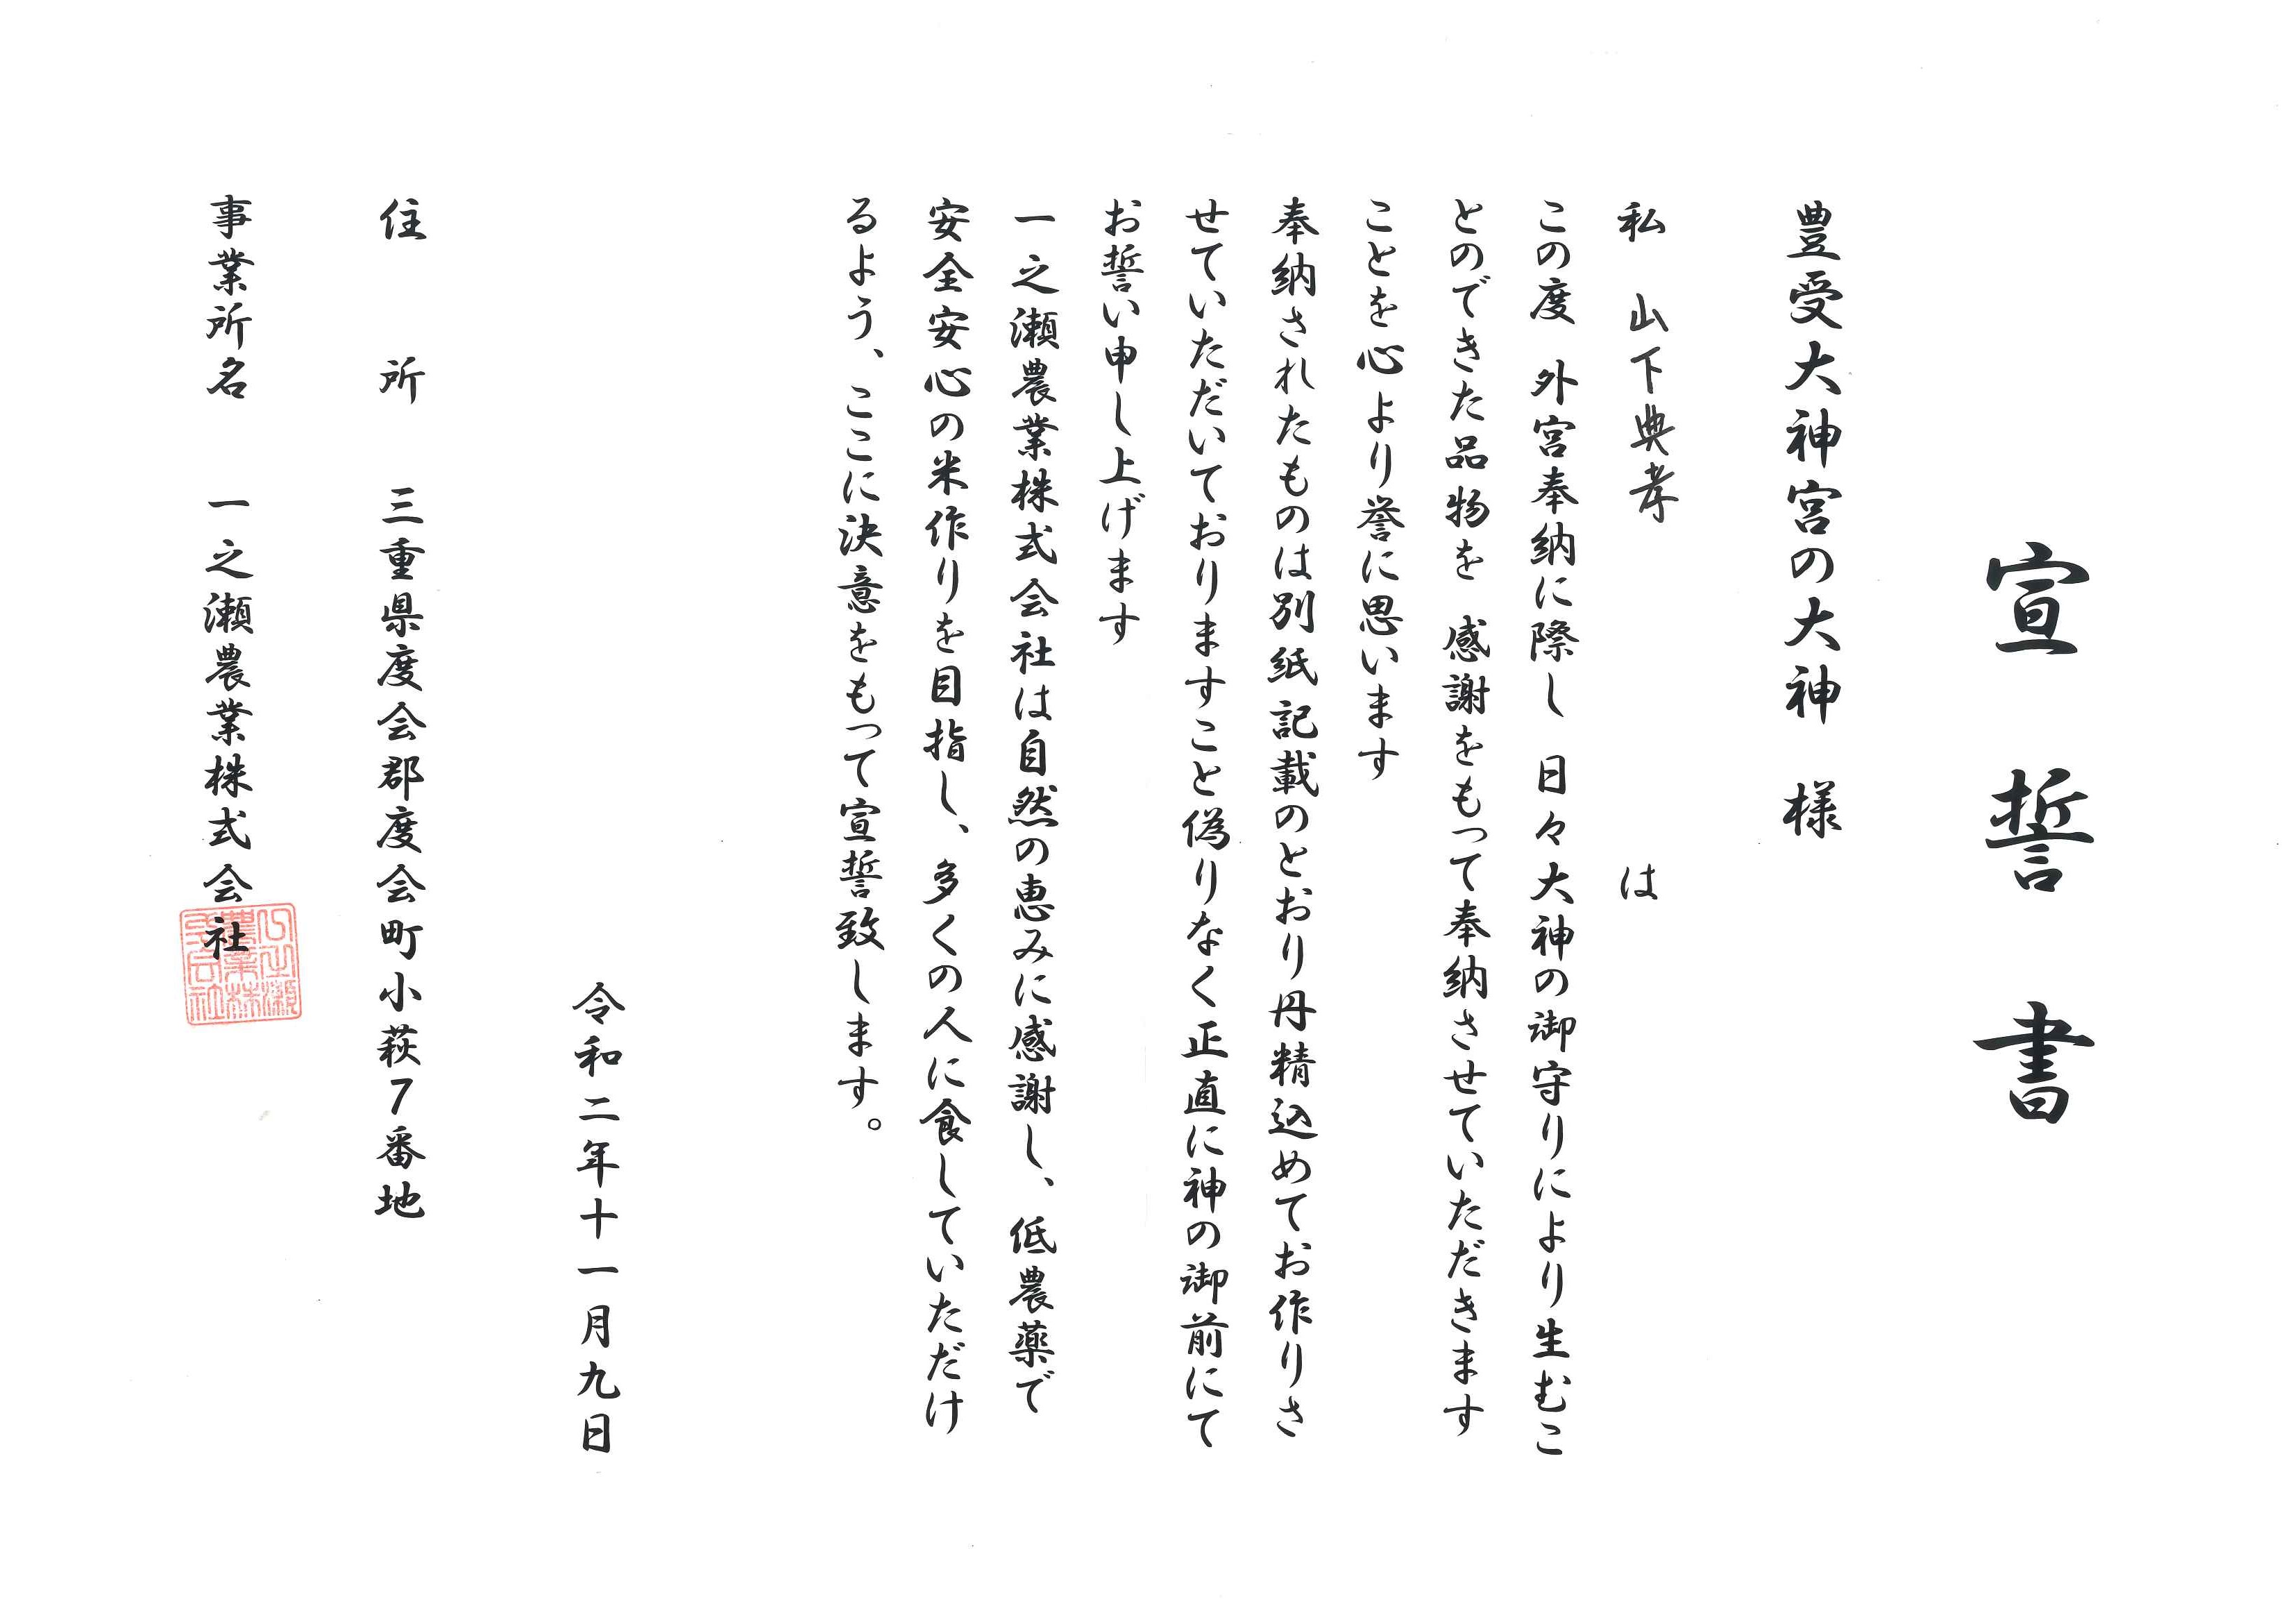 宣誓書
豊受大神宮の大神　様
私　山下典孝　は
この度　外宮奉納に際し　日々大神の御守りにより生むこ
とのできた品物を　感謝をもって奉納させていただきます
ことを心より誉に思います
奉納されたものは別紙記載のとおり丹精込めてお作りさ
せていただいておりますこと偽りなく正直に神の御前にて
お誓い申し上げます
一之瀬農業株式会社は自然の恵みに感謝し、低農薬で
安全安心の米作りを目指し、多くの人に食していただけ
るよう、ここに決意をもって宣誓致します。
令和二年十一月九日
住　所　三重県度会郡度会町小萩７番地
事業所名　一之瀬農業株式会社